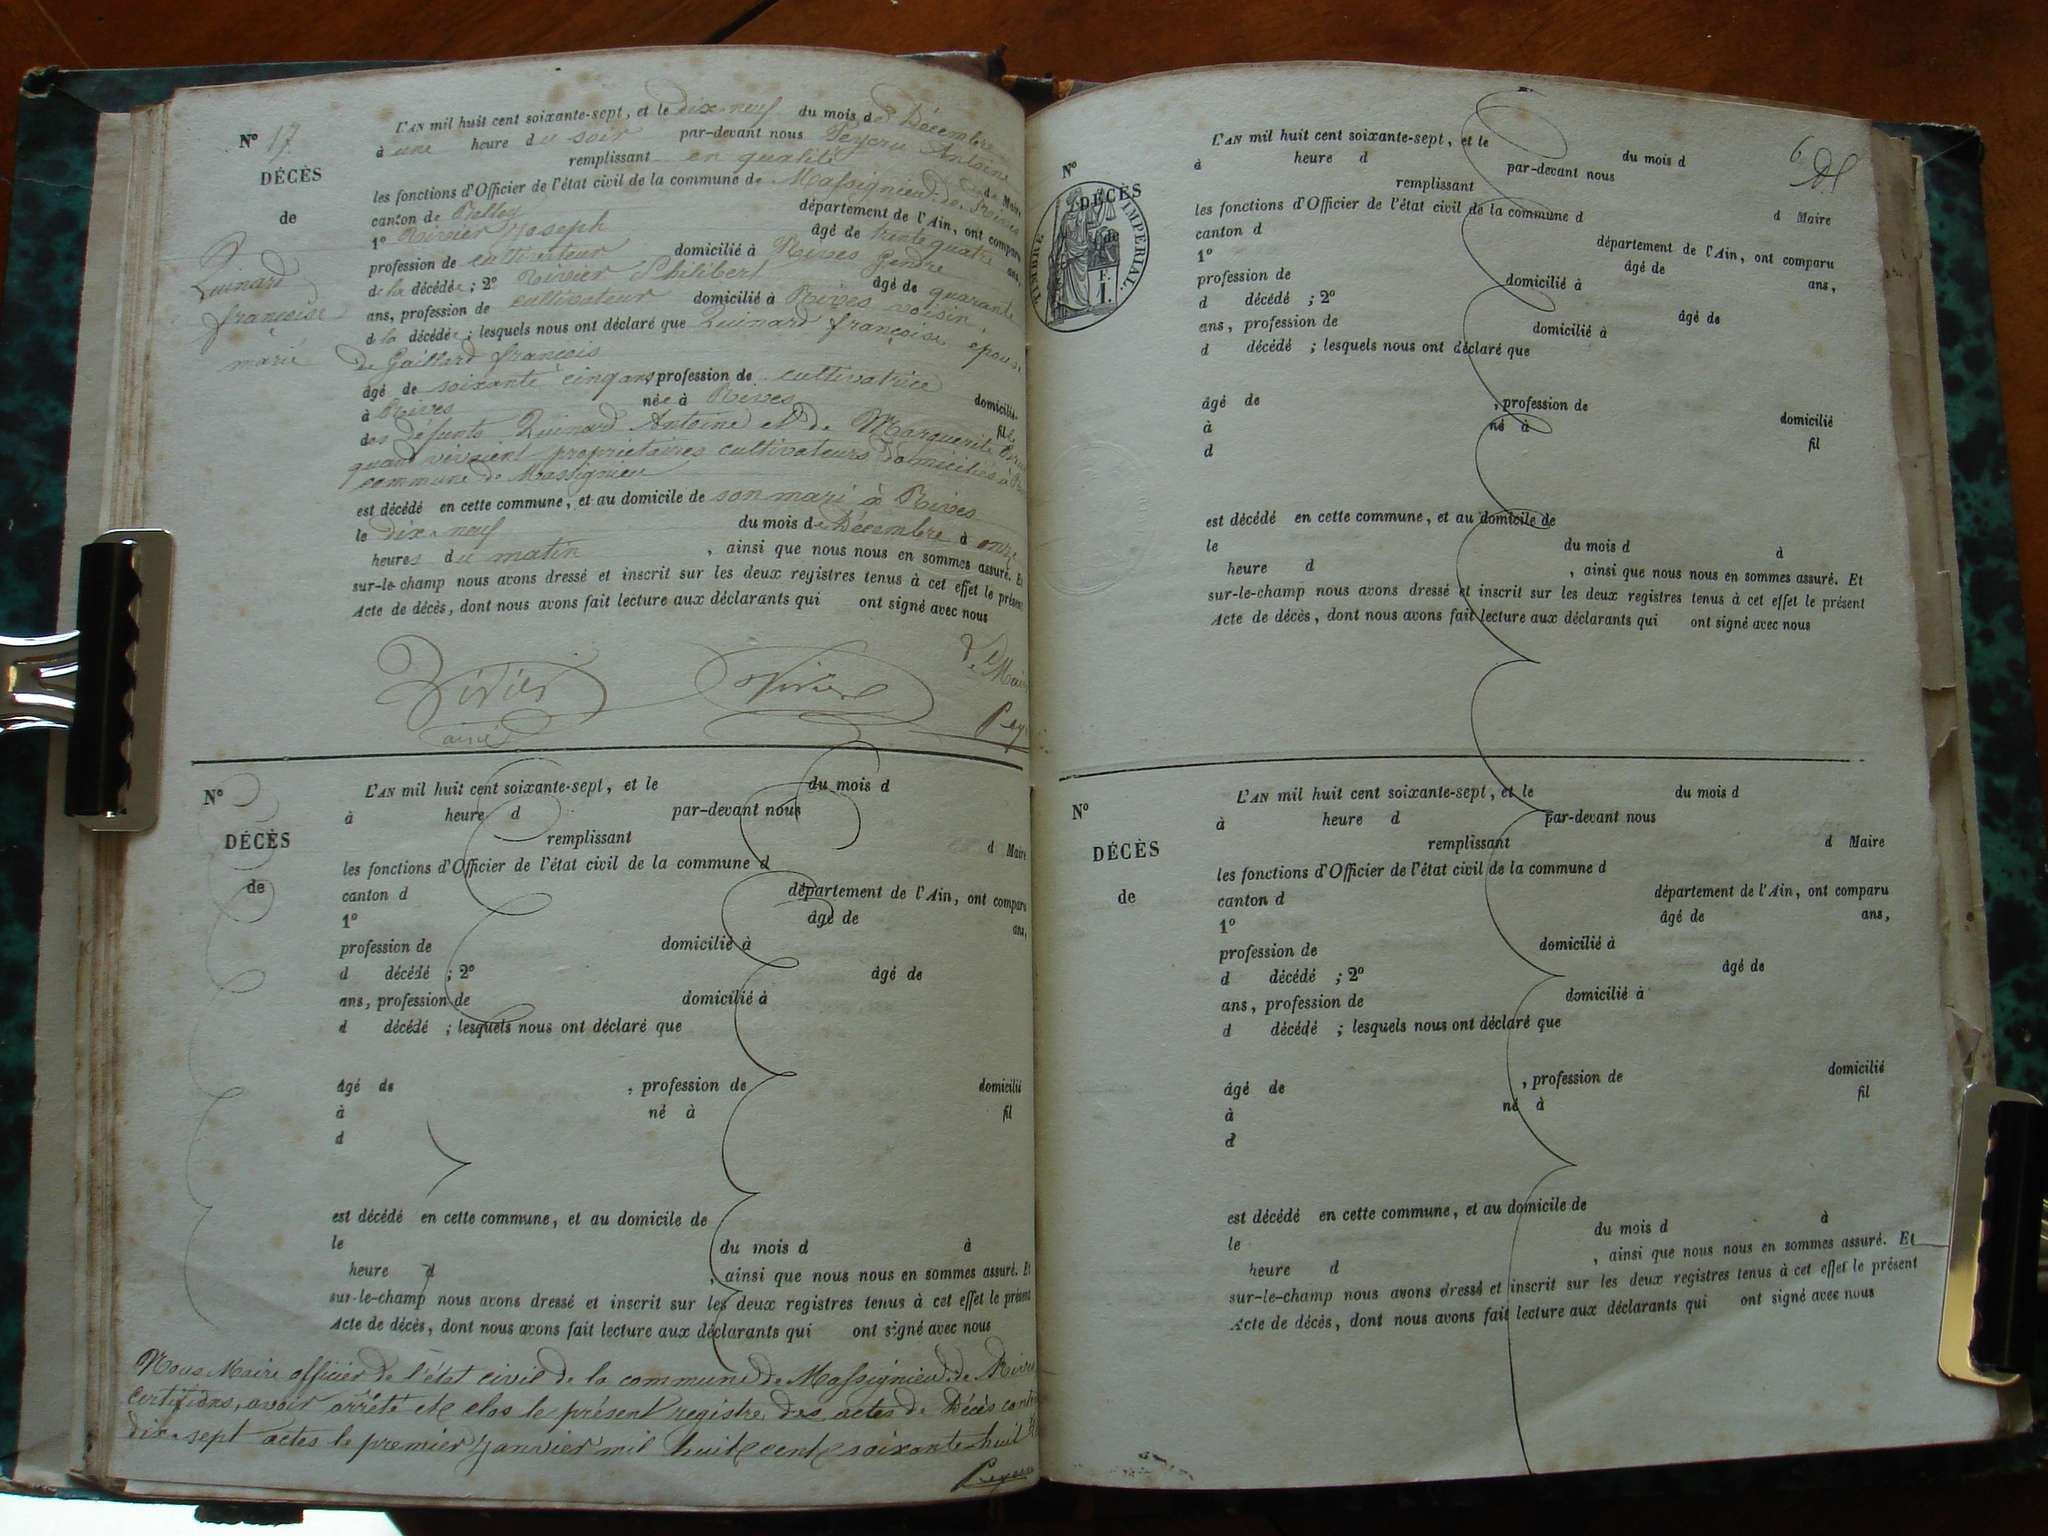 N° 17
DÉCÈS
de
Quinard
françoise
marié
L'AN mil huit cent soixante-sept, et le dix-neuf du mois de Décembre
à une heure du soir par-devant nous Peycru Antoine
remplissant en qualité de Maire
les fonctions d'Officier de l'état civil de la commune de Massignieu de Rives
canton de Belley département de l'Ain, ont comparu
1° Rivier Joseph âgé de trente quatre ans,
profession de cultivateur domicilié à Rives Gendre
de la décédée ; 2° Rivier Philibert âgé de quarante
ans, profession de cultivateur domicilié à Rives voisin
d la décédée ; lesquels nous ont déclaré que Quinard françoise, epouse
de Gaillard françois
âgé de soixante cinq ans, profession de cultivatrice domicilié
à Rives née à Rives fille
des défunts Quinard Antoine et de Marguerite
quand vivaient propriétaires cultivateurs domiciliés à
commune de Massignieu
est décédé en cette commune, et au domicile de son mari à Rives
le dix-neuf du mois de Décembre à onze
heures du matin , ainsi que nous nous en sommes assuré. Et
sur-le-champ nous avons dressé et inscrit sur les deux registres tenus à cet effet le présent
Acte de décès, dont nous avons fait lecture aux déclarants qui ont signé avec nous
Rivier
ainé
Rivier
Le Maire
N°
DÉCÈS
de
L'AN mil huit cent soixante-sept, et le du mois d
à heure d par-devant nous
remplissant d Maire
les fonctions d'Officier de l'état civil de la commune d
canton d département de l'Ain, ont comparu
1° âgé de ans,
profession de domicilié à
d décédé ; 2° âgé de
ans, profession de domicilié à
d décédé ; lesquels nous ont déclaré que
âgé de , profession de domicilié
à né à fil
d
est décédé en cette commune, et au domicile de
le du mois d à
heure d , ainsi que nous nous en sommes assuré. Et
sur-le-champ nous avons dressé et inscrit sur les deux registres tenus à cet effet le présent
Acte de décès, dont nous avons fait lecture aux déclarants qui ont signé avec nous
Nous Maire officier de l'état civil de la commune de Massignieu de Rives
certifions, avoir arrêté et clos le présent registre des actes de Décès
dix-sept actes le premier Janvier mil huit cent soixante huit
6
N°
DÉCÈS
de
TIMBRE IMPERIAL.
F.
1.
L'AN mil huit cent soixante-sept, et le du mois d
à heure d par-devant nous
remplissant d Maire
les fonctions d'Officier de l'état civil de la commune d
canton d département de l'Ain, ont comparu
1° âgé de ans,
profession de domicilié à
d décédé ; 2° âgé de
ans, profession de domicilié à
d décédé ; lesquels nous ont déclaré que
âgé de , profession de domicilié
à né à fil
d
est décédé en cette commune, et au domicile de
le du mois d à
heure d , ainsi que nous nous en sommes assuré. Et
sur-le-champ nous avons dressé et inscrit sur les deux registres tenus à cet effet le présent
Acte de décès, dont nous avons fait lecture aux déclarants qui ont signé avec nous
N°
DÉCÈS
de
L'AN mil huit cent soixante-sept, et le du mois d
à heure d par-devant nous
remplissant d Maire
les fonctions d'Officier de l'état civil de la commune d
canton d département de l'Ain, ont comparu
1° âgé de ans,
profession de domicilié à
d décédé ; 2° âgé de
ans, profession de domicilié à
d décédé ; lesquels nous ont déclaré que
âgé de , profession de domicilié
à né à fil
d
est décédé en cette commune, et au domicile de
le du mois d à
heure d , ainsi que nous nous en sommes assuré. Et
sur-le-champ nous avons dressé et inscrit sur les deux registres tenus à cet effet le présent
Acte de décès, dont nous avons fait lecture aux déclarants qui ont signé avec nous